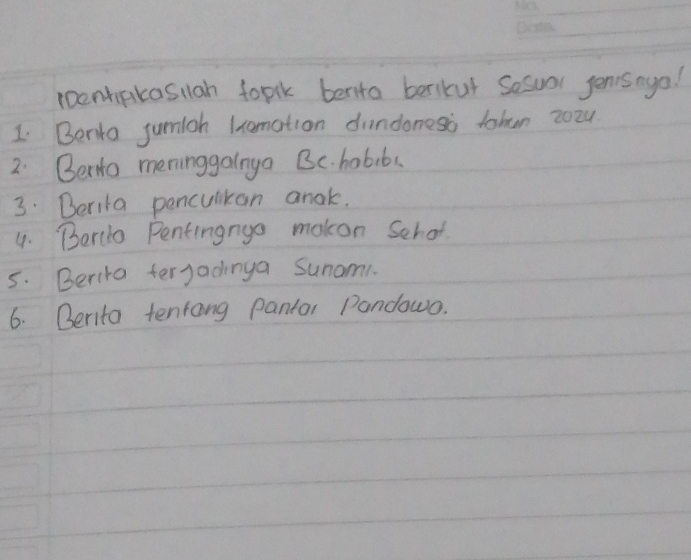 No.
Date
identifikasilah topik berita berikut sesuai jenisnya!
1. Berita jumlah kamatian diindonesia tahun 2024.
2. Berita meninggalnya Bc. habibi.
3. Berita penculikan anak.
4. Berita Pentingnya makan Sehat.
5. Berita terjadinya Sunami.
6. Berita tentang Pantai Pandawa.